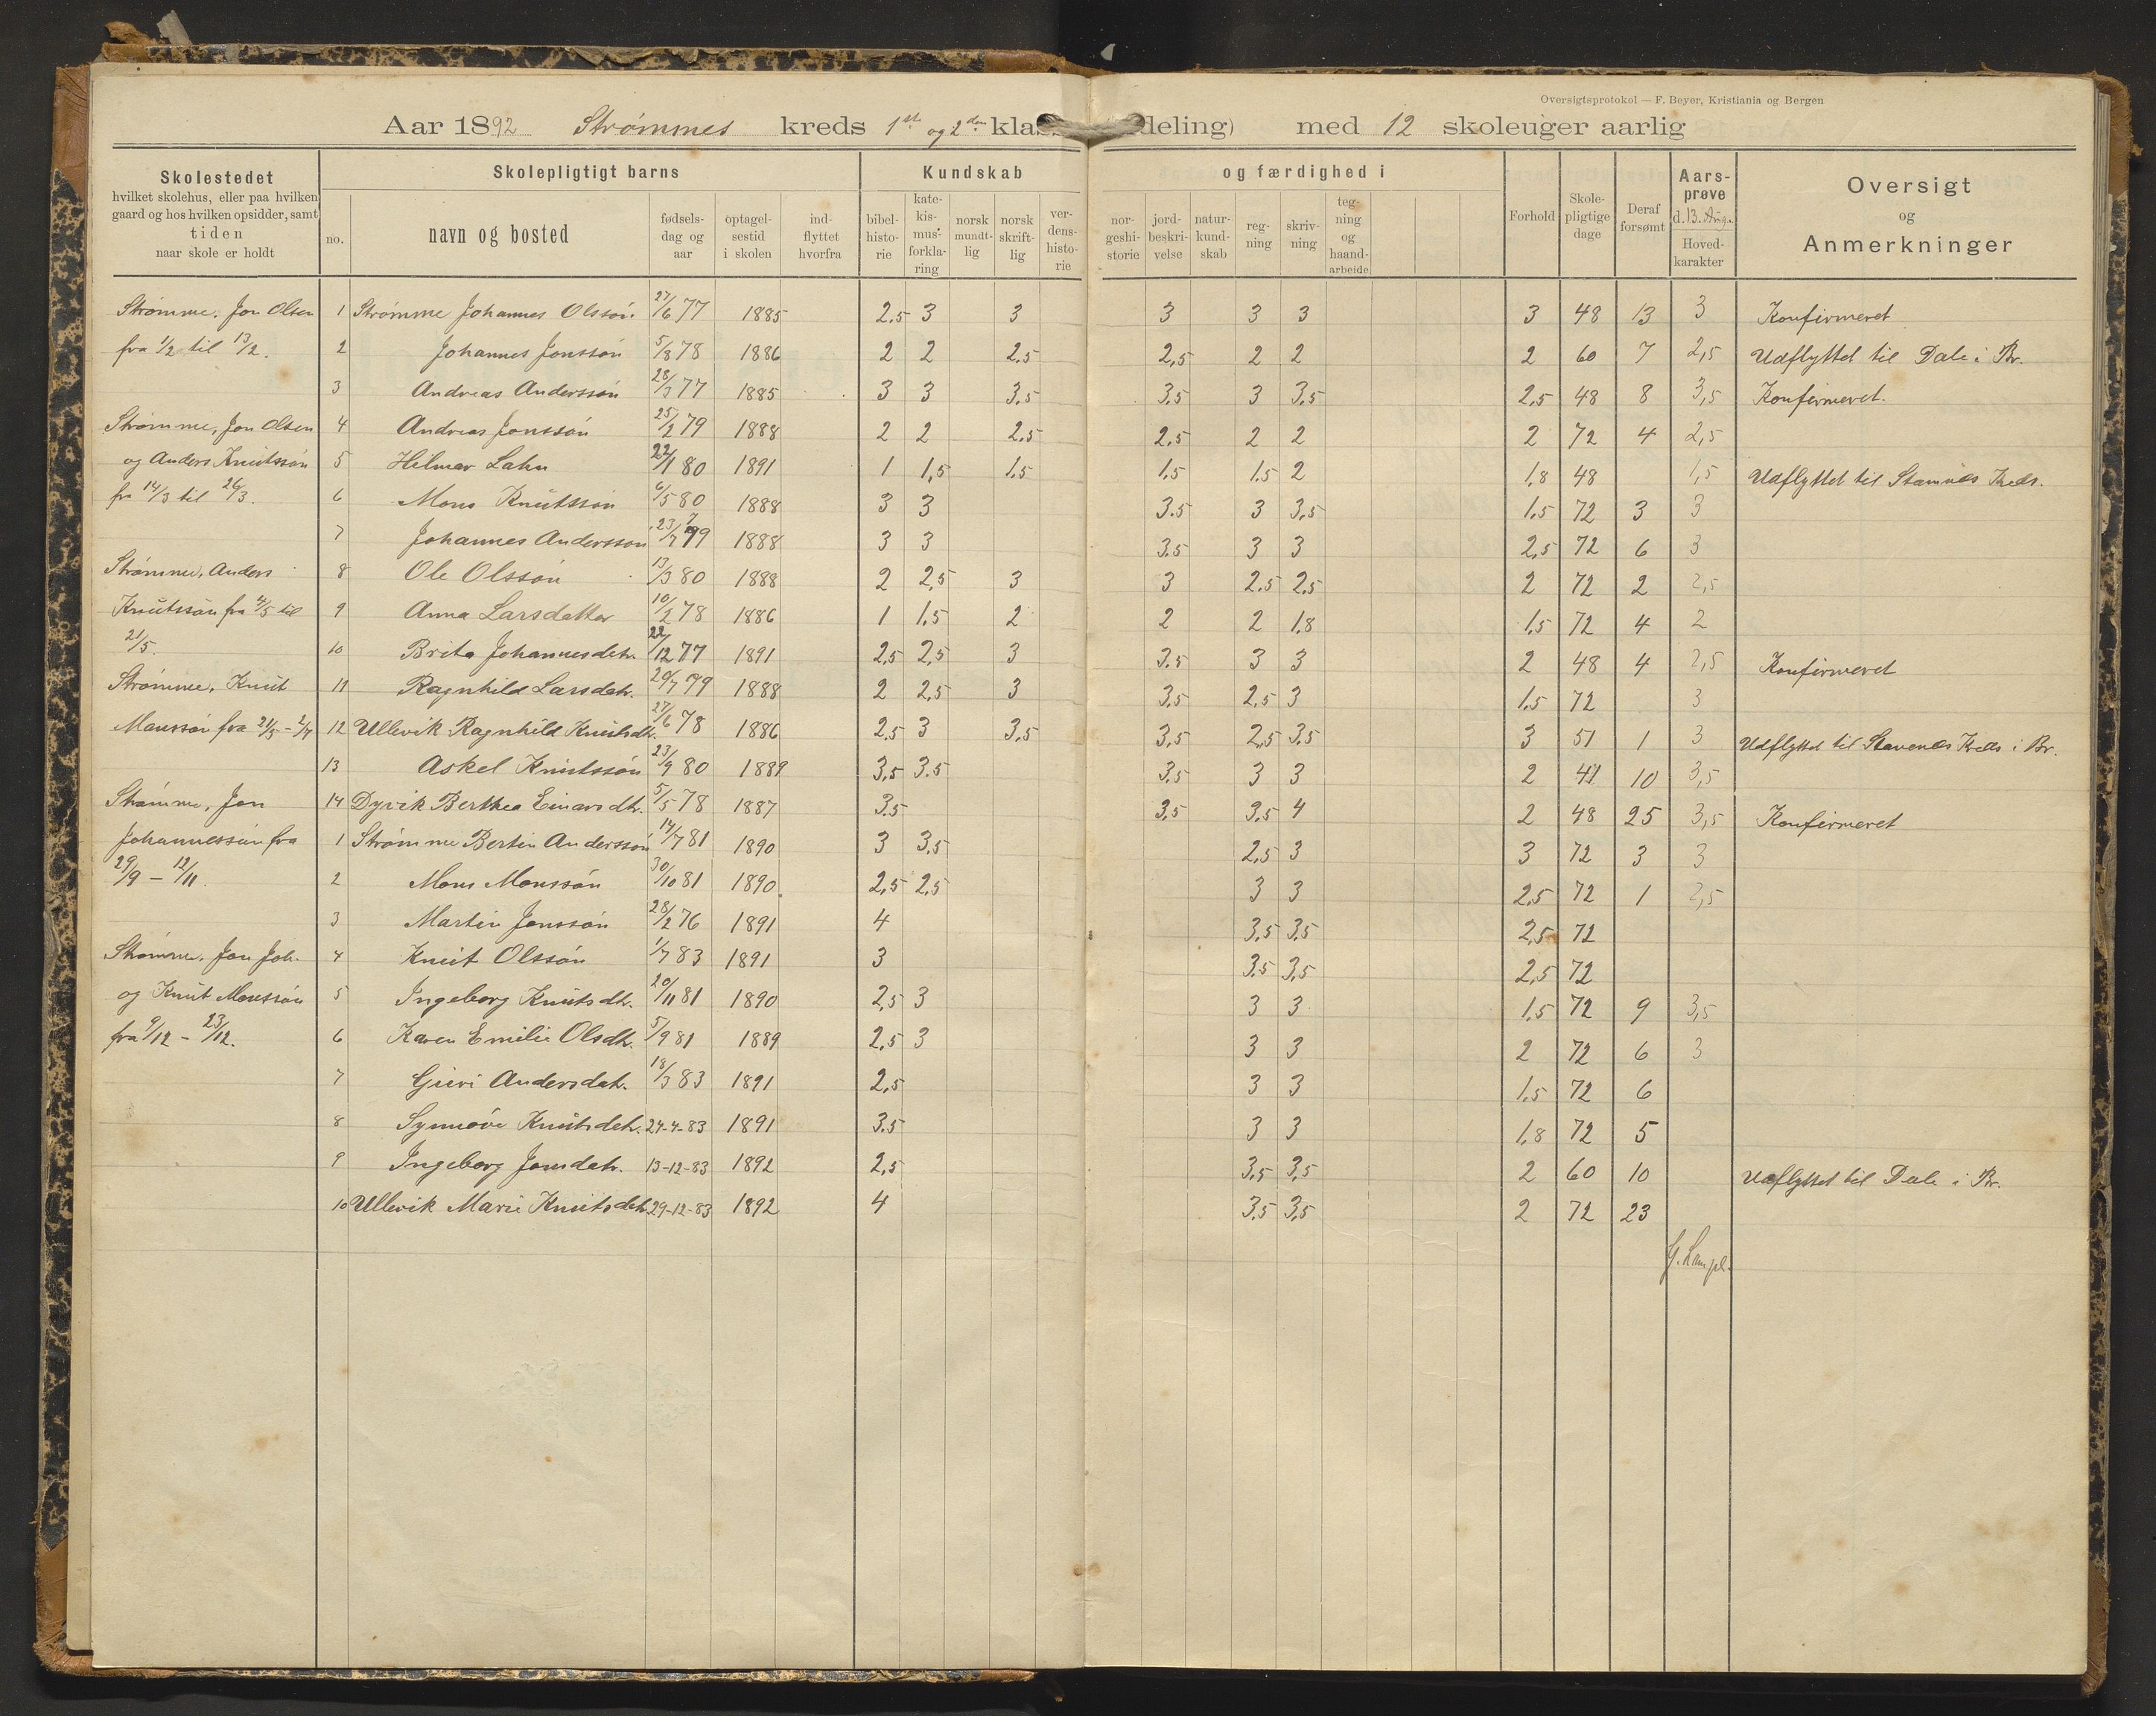 Oversigtsprotokol — F. Beyer, Kristiania og Bergen
Aar 1892 Strømmes kreds 1ste og 2den klas deling) med 12 skoleuger aarlig
Skolestedet
hvilket skolehus, eller paa hvilken
gaard og hos hvilken opsidder, samt
tiden
naar skole er holdt
Skolepligtigt barns
no.
navn og bosted
fødsels-
dag og
aar
optagel-
sestid
i skolen
ind-
flyttet
hvorfra
Kundskab
bibel-
histo-
rie
kate-
kis-
mus-
forkla-
ring
norsk
mundt-
lig
norsk
skrift-
lig
ver-
dens-
histo-
rie
og færdighed i
nor-
geshi-
storie
jord-
beskri-
velse
natur-
kund-
skab
reg-
ning
skriv-
ning
teg-
ning
og
haand-
arbeide
Forhold
Skole-
pligtige
dage
Deraf
forsømt
Aars-
prøve
d. 13. Aug.
Hoved-
karakter
Oversigt
og
Anmerkninger
Strømme, Jon Olsen 1 Strømme Johannes Olssøn 27/6 77 1885 2,5 3 3 3 3 3 3 48 13 3 Konfirmeret
fra 1/2 til 13/2. 2 Johannes Jonssøn 5/8 78 1886 2 2 2,5 2,5 2 2 2 60 7 2,5 Udflyttet til Dale i Br.
3 Andreas Anderssøn 28/3 77 1885 3 3 3,5 3,5 3 3,5 2,5 48 8 3,5 Konfirmeret.
Strømme, Jon Olsen 4 Andreas Jonssøn 25/2 79 1888 2 2 2,5 2,5 2 2 2 72 4 2,5
og Anders Knutssøn 5 Hilmar Lahn 22/1 80 1891 1 1,5 1,5 1,5 1,5 2 1,8 48 1,5 Udflyttet til Stamnes Kreds.
fra 14/3 til 26/3. 6 Mons Knutssøn 6/5 80 1888 3 3 3.5 3 3,5 1,5 72 3 3
7 Johannes Anderssøn 23/7 79 1888 3 3 3.5 3 3 2,5 72 6 3
Strømme, Anders 8 Ole Olssøn 13/3 80 1888 2 2,5 3 3 2,5 2,5 2 72 2 2,5
Knutssøn fra 4/5 til 9 Anna Larsdatter 10/2 78 1886 1 1,5 2 2 2 1,8 1,5 72 4 2
21/5. 10 Brita Johannesdtr. 22/12 77 1891 2,5 2,5 3 3.5 3 3 2 48 4 2,5 Konfirmeret
Strømme, Knut 11 Ragnhild Larsdtr. 20/7 79 1888 2 2,5 3 3,5 2,5 3 1,5 72 3
Monssøn fra 21/5 - 2/7 12 Ullevik Ragnhild Knutsdtr. 27/6 78 1886 2,5 3 3,5 3,5 2,5 3,5 3 51 1 3 Udflyttet til Stavenes Kreds i Br.
13 Askel Knutssøn 23/9 80 1889 3,5 3.5 3.5 3 3 2 41 10 3,5
Strømme, Jon 14 Dyvik Berthea Einarsdtr. 5/5 78 1887 3.5 3,5 3.5 4 2 48 25 3,5 Konfirmeret
Johannessøn fra 1 Strømme Bertin Anderssøn 14/7 81 1890 3 3,5 2,5 3 3 72 3 3
29/9 — 12/11. 2 Mons Monssøn 30/10 81 1890 2,5 2,5 3 3 2,5 72 1 2,5
3 Martin Jonssøn 28/2 76 1891 4 3,5 3,5 2,5 72
Strømme, Jon Joh. 4 Knut Olssøn 1/7 83 1891 3 3.5 3,5 2,5 72
og Knut Monssøn 5 Ingeborg Knutsdtr. 20/11 81 1890 2,5 3 3 3 1,5 72 9 3,5
fra 9/12 - 23/12. 6 Karen Emilie Olsdtr. 5/9 81 1889 2,5 3 3 3 2 72 6 3
7 Guri Andersdatr. 18/3 83 1891 2,5 3 3 1,5 72 6
8 Synnøve Knutsdtr. 24-4-83 1891 3.5 3 3 1,8 72 5
9 Ingeborg Jonsdtr. 13-12-83 1892 2,5 3,5 3,5 2 60 10 Udflyttet til Dale i Br.
10 Ullevik Marie Knutsdtr. 29-12-83 1892 4 3,5 3,5 2 72 23